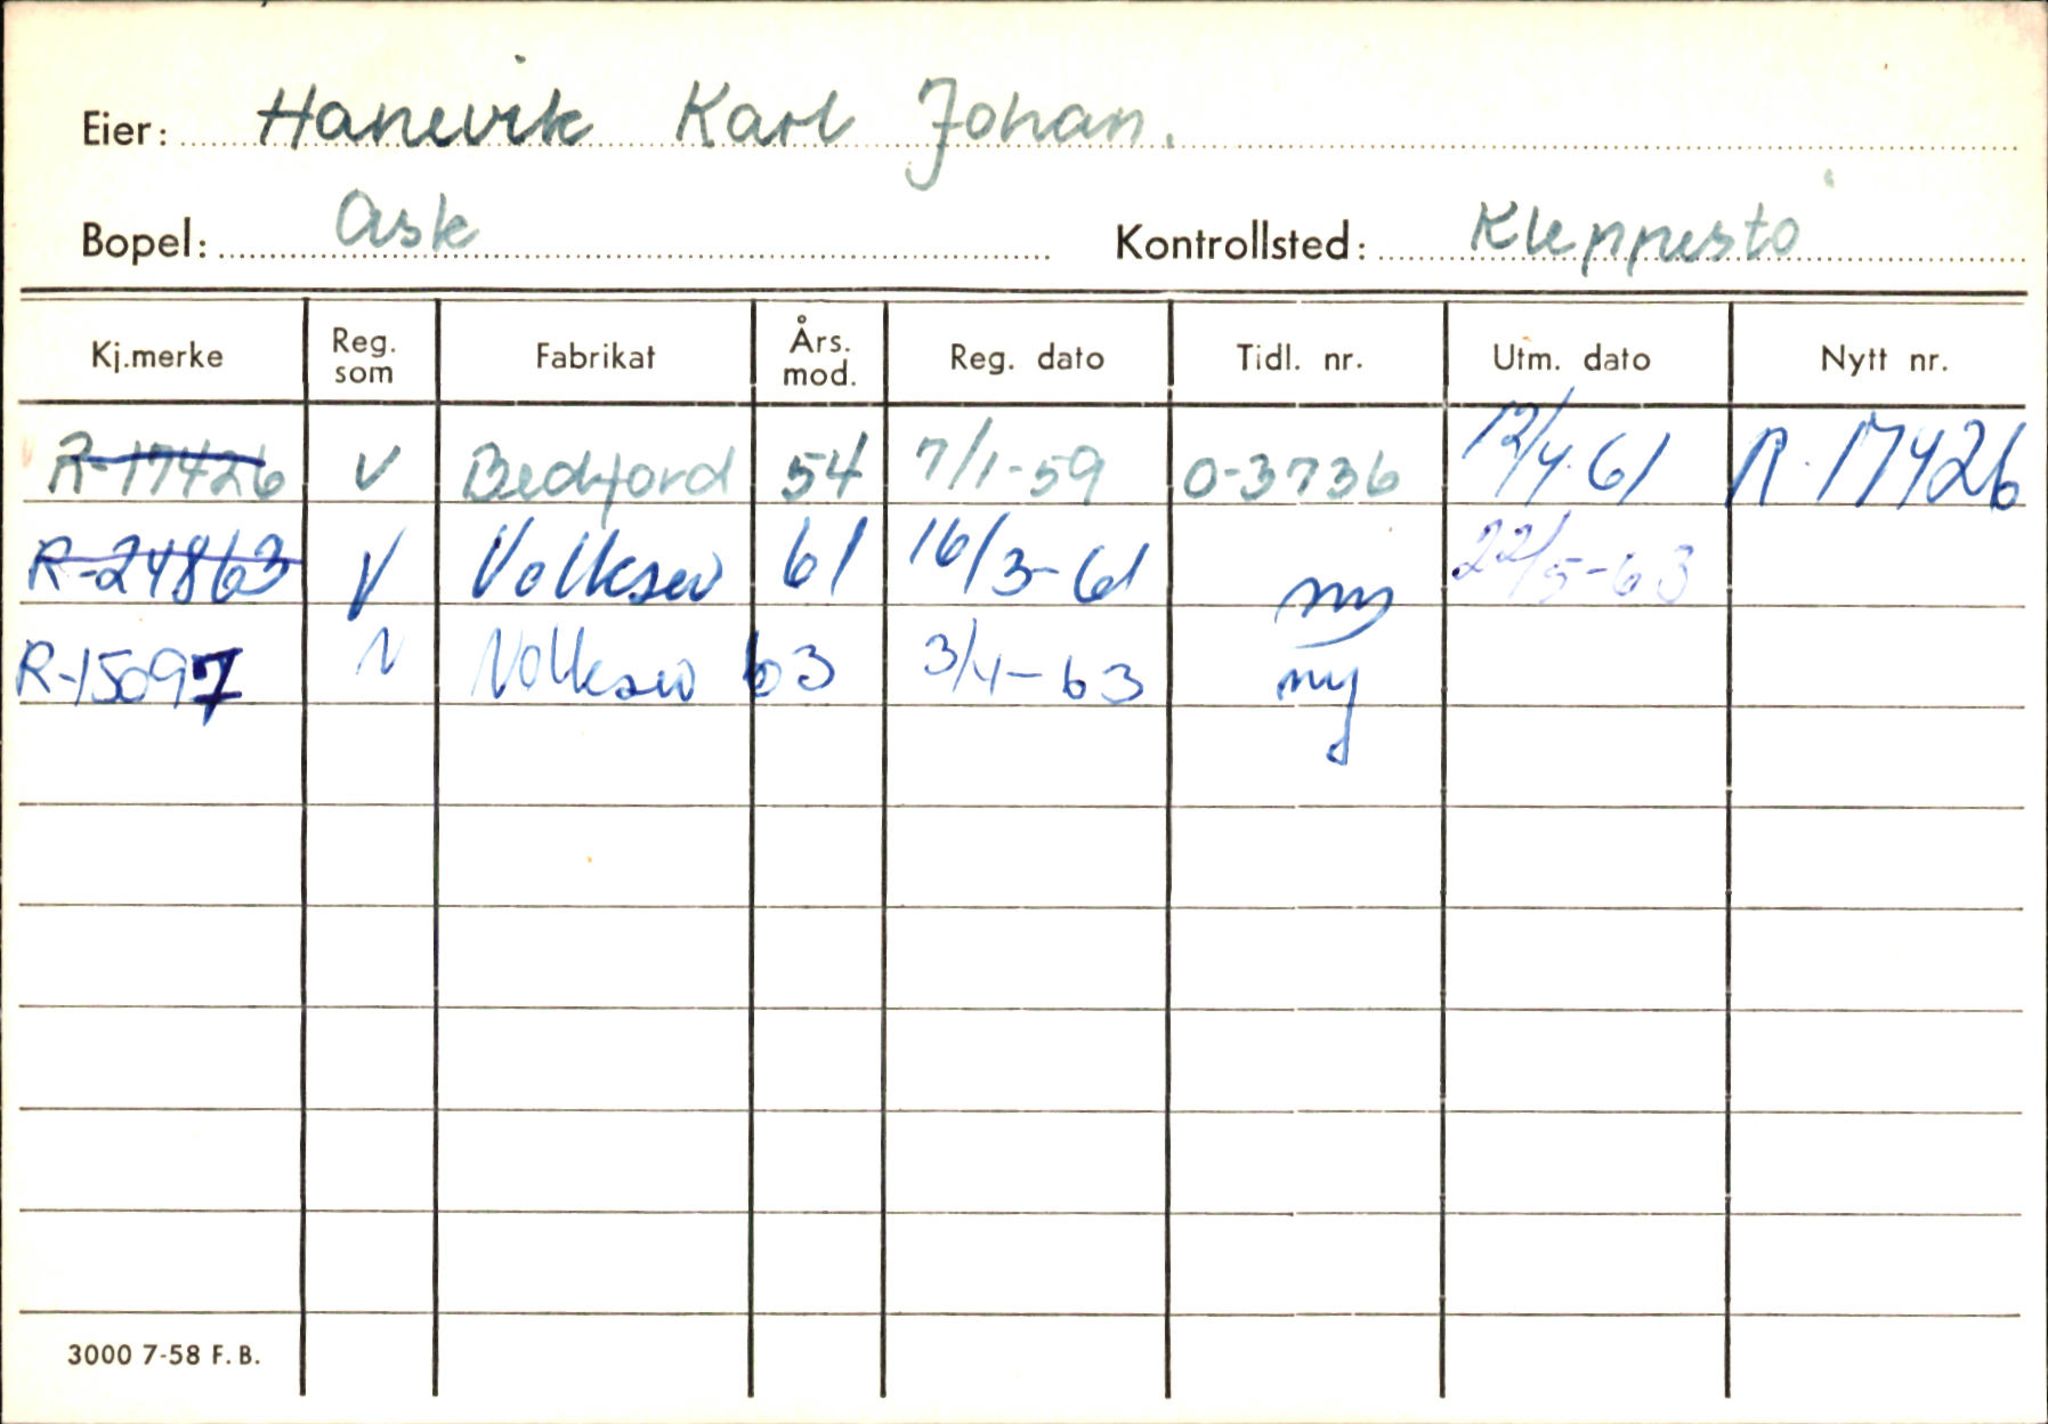 Eier: Hanevik Karl Johan.
Bopel: Ask Kontrollsted: Kleppestø
Kj.merke Reg. som Fabrikat Års. mod. Reg. dato Tidl. nr. Utm. dato Nytt nr.
R-17426 V Bedford 54 7/1-59 O-3736 12/4.61 R.17426
R-24863 V Volksw 61 16/3-61 ny 22/5-63
R-15097 V Volksw 63 3/4-63 ny
3000 7-58 F.B.